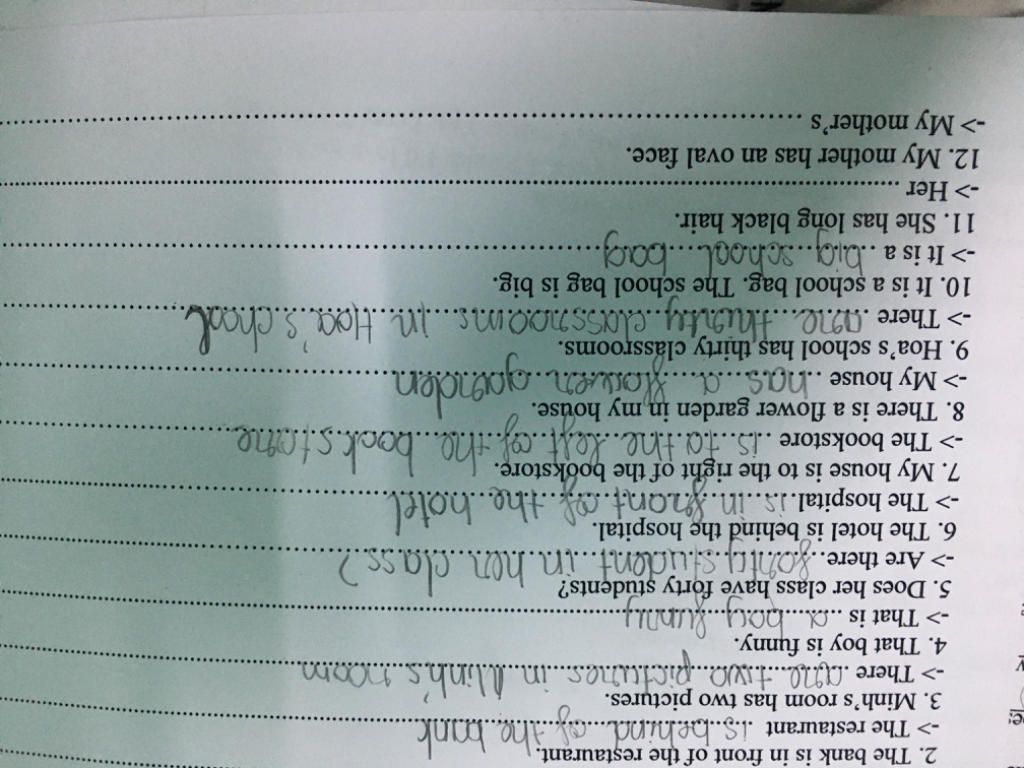 2. The bank is in front of the restaurant.
-> The restaurant is behind of the bank
3. Minh's room has two pictures.
-> There are two pictures in Minh's room
4. That boy is funny.
-> That is a boy funny
5. Does her class have forty students?
-> Are there forty student in her class?
6. The hotel is behind the hospital.
-> The hospital is in front of the hotel
7. My house is to the right of the bookstore.
-> The bookstore is to the left of the book store
8. There is a flower garden in my house.
-> My house has a flower garden
9. Hoa's school has thirty classrooms.
-> There are thirty classrooms in Hoa's chool
10. It is a school bag. The school bag is big.
-> It is a big school bag
11. She has long black hair.
-> Her
12. My mother has an oval face.
-> My mother's